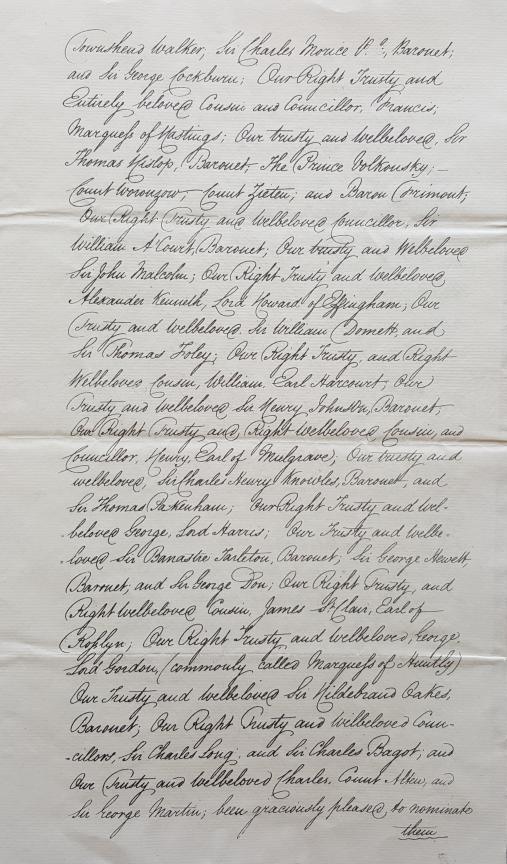 Townshend Walker; Sir Charles Morice P.e:, Baronet;
and Sir George Cockburn; Our Right Trusty and
Entirely beloved Cousin and Councillor, Francis,
Marquess of Hastings; Our trusty and Welbeloved, Sir
Thomas Hislop, Baronet; The Prince Volkonsky;—
Count Woronzow, Count Zieten; and Baron Frimont;
Our Right Trusty and Welbeloved Councillor, Sir
William A'Court, Baronet; Our trusty and Welbeloved
Sir John Malcolm; Our Right Trusty and welbeloved
Alexander Kenneth, Lord Howard of Effingham; Our
Trusty and Welbeloved Sir William Domett, and
Sir Thomas Foley; Our Right Trusty, and Right
Welbeloved Cousin, William, Earl Harcourt; Our
Trusty and welbeloved Sir Henry Johnson, Baronet,
Our Right Trusty and Right Welbeloved Cousin, and
Councillor, Henry, Earl of Mulgrave; Our trusty and
welbeloved, Sir Charles Henry Knowles, Baronet, and
Sir Thomas Pakenham; Our Right Trusty and Wel-
-beloved George, Lord Harris; Our Trusty and Welbe-
-loved Sir Banastre Tarleton, Baronet; Sir George Hewett,
Baronet; and Sir George Don; Our Right Trusty, and
Right Welbeloved Cousin, James St Clair, Earl of
Rosslyn; Our Right Trusty and Welbeloved, George,
Lord Gordon, (commonly called Marquess of Huntly)
Our Trusty and Welbeloved Sir Hildebrand Oakes,
Baronet; Our Right Trusty and Welbeloved Coun-
-cillors, Sir Charles Long, and Sir Charles Bagot; and
Our Trusty and Welbeloved Charles, Count Alten, and
Sir George Martin; been graciously pleased, to nominate
them